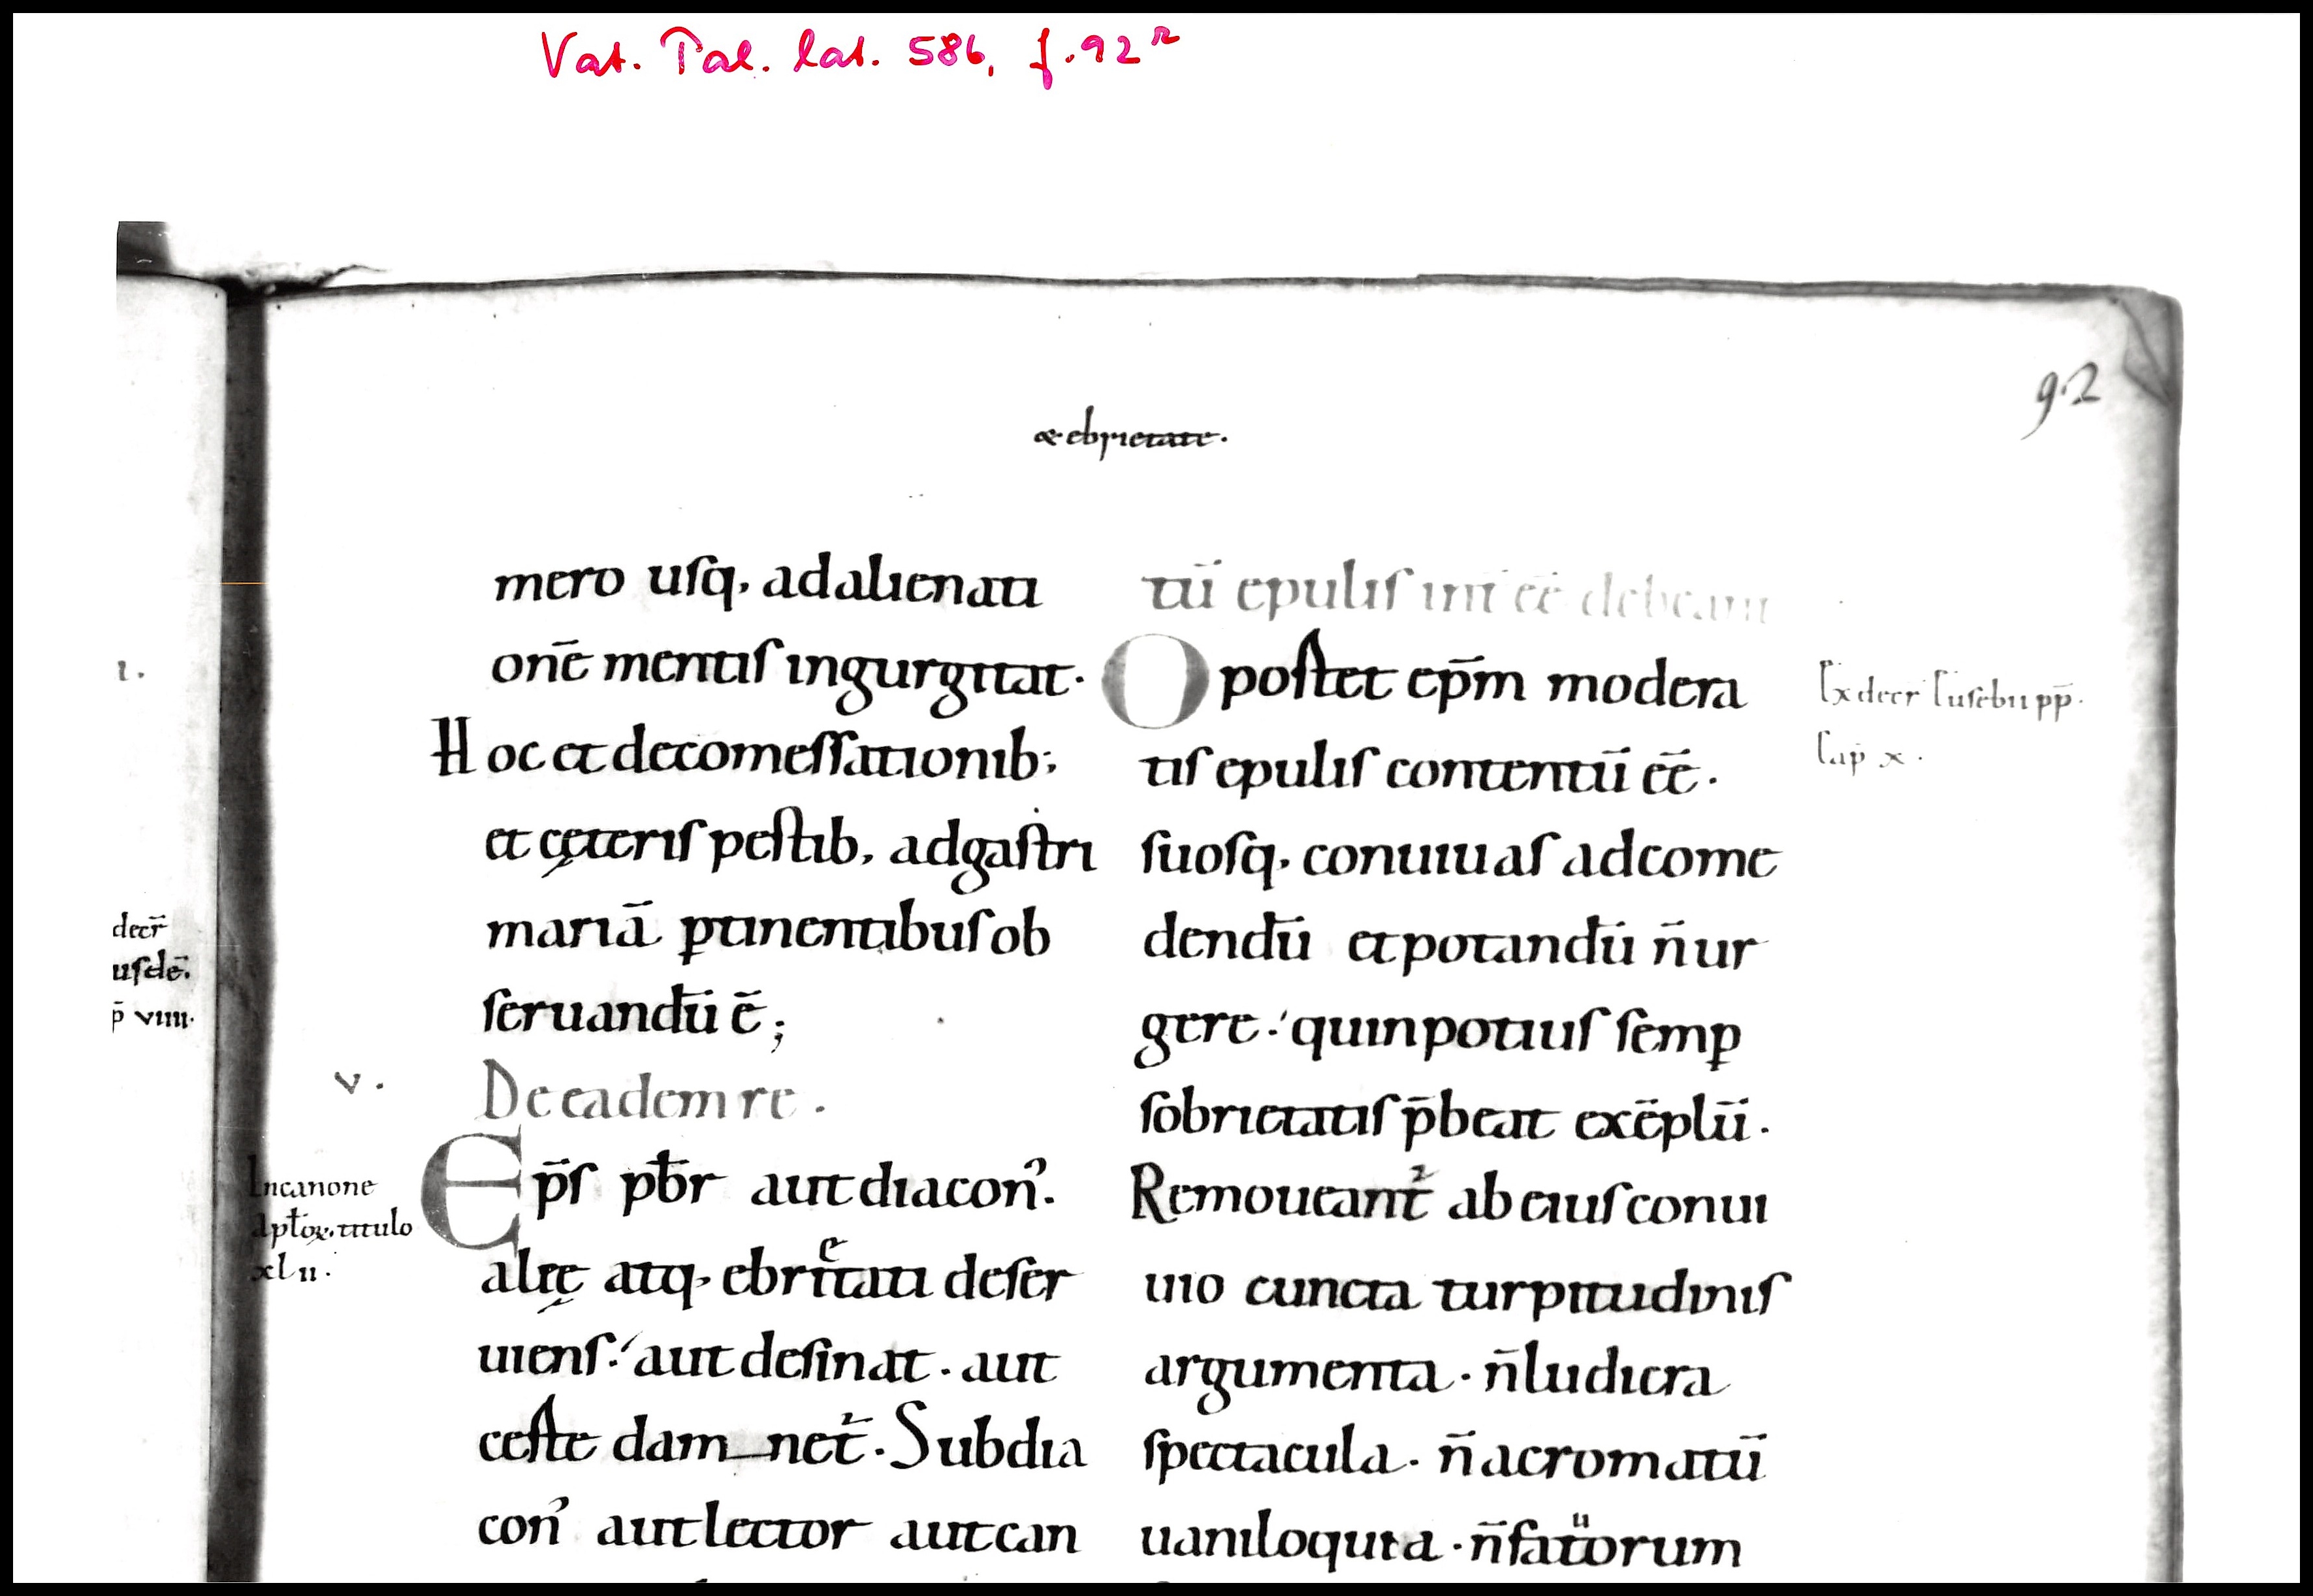 Vat. Pal. lat. 586, f. 92r
92
& ebrietate.
mero usq; ad alienati
onē mentis ingurgitat.
Hoc et de comessationib;
et cęteris pestib; ad gastri
mariā ꝑtinentibus ob
seruandū ē;
v.
De eadem re.
In canone
Aptoꝝ. titulo
xlii.
Ep̄s pbr̄ aut diacon᾿.
alęę atq; ebrietati deser
uiens. aut desinat. aut
certe dam net᷑. Subdia
con᾿ aut lector aut can
tū epulis int̄ ēē debeant
Oportet ep̄m modera
Ex decr Eusebii pp̄.
Cap̄ x.
tis epulis contentū ēē.
suosq; conuiuas ad come
dendū et potandū n̄ ur
gere. quin potius semꝑ
sobrietatis p̄beat exēplū.
Remoueant᷑ ab eius conui
uio cuncta turpitudinis
argumenta. n̄ ludicra
spectacula. n̄ acromatū
uaniloquia. n̄ fatuorum
i.
decr̄
usdē.
p̄ viiii.